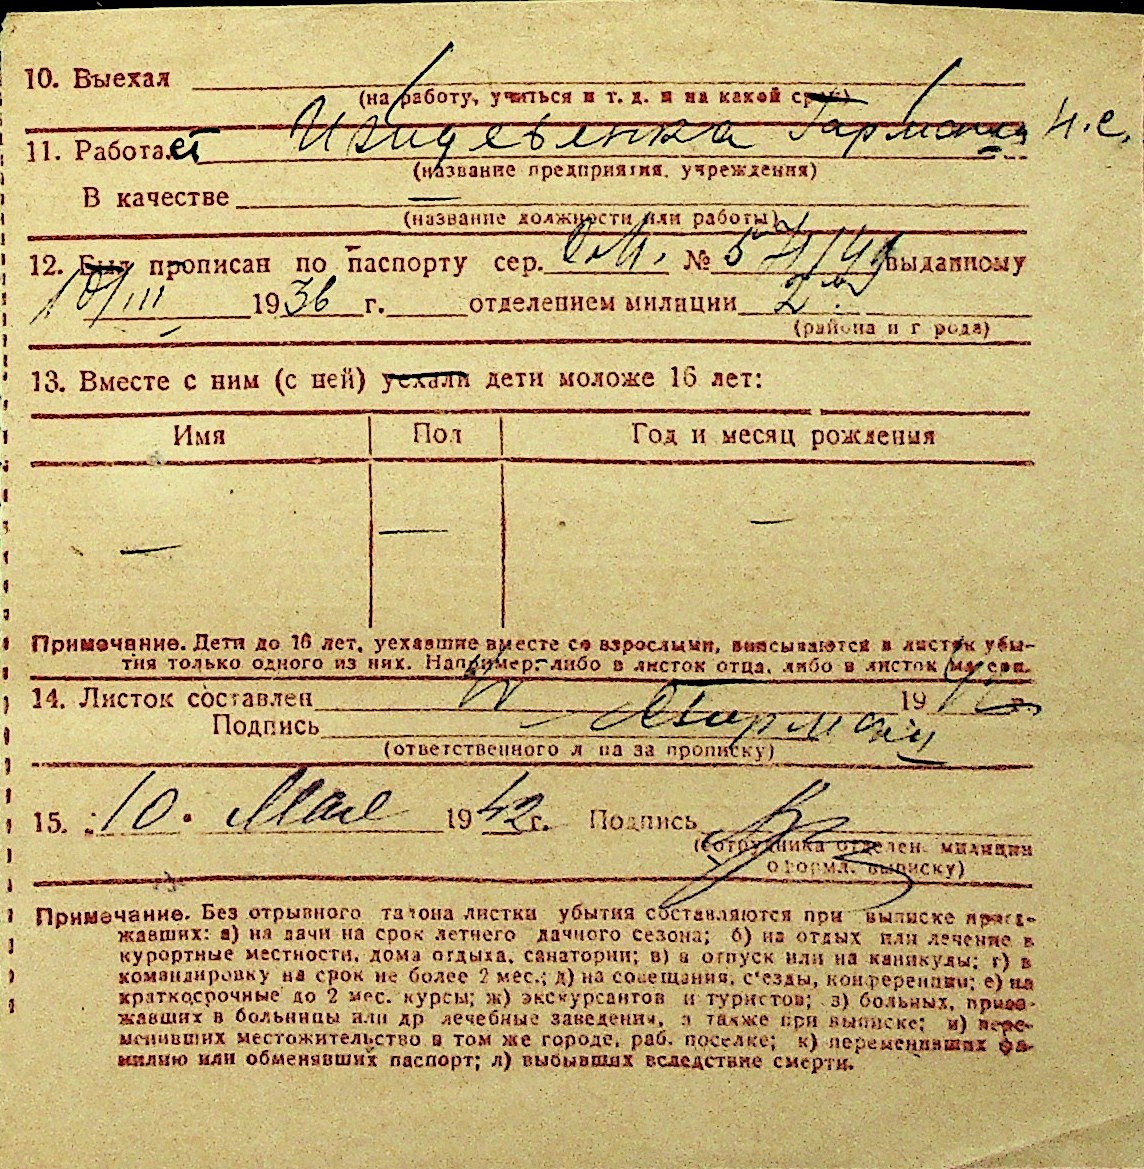 10. Выехал
(на работу, учиться и т. д. и на какой срок)
11. Работает Иждевенка Гармонщ Н.С.
(название предприятия, учреждения)
В качестве —
(название должности или работы)
12. Был прописан по паспорту сер. № выданному
10/III 1936 г. отделением милиции 2
(района и города)
13. Вместе с ним (с ней) уехали дети моложе 16 лет:
Имя Пол Год и месяц рождения
— — —
Примечание. Дети до 16 лет, уехавшие вместе со взрослыми, вписываются в листок убы-
тия только одного из них. Например: либо в листок отца, либо в листок матери.
14. Листок составлен 1942 г.
Подпись
(ответственного лица за прописку)
15. 10 Мая 1942 г. Подпись
(сотрудника отделен. милиции
оформл. выписку)
Примечание. Без отрывного талона листки убытия составляются при выписке приез-
жавших: а) на дачи на срок летнего дачного сезона; б) на отдых или лечение в
курортные местности, дома отдыха, санатории; в) в отпуск или на каникулы; г) в
командировку на срок не более 2 мес.; д) на совещания, съезды, конференции; е) на
краткосрочные до 2 мес. курсы; ж) экскурсантов и туристов; з) больных, приез-
жавших в больницы или др лечебные заведения, а также при выписке; и) пере-
менивших местожительство в том же городе, раб. поселке; к) переменивших фа-
милию или обменявших паспорт; л) выбывших вследствие смерти.